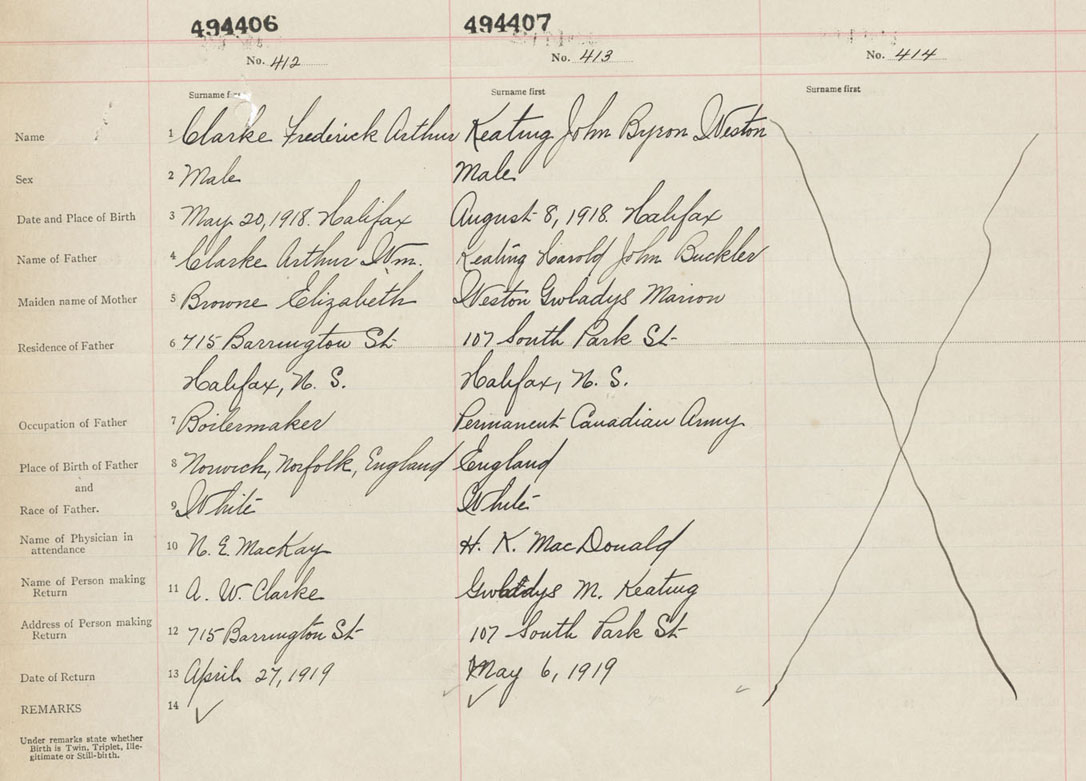 494406 494407
No. 412 No. 413 No. 414
Surname first Surname first Surname first
Name 1 Clarke Frederick Arthur Keating John Byron Weston
Sex 2 Male Male
Date and Place of Birth 3 May 20, 1918. Halifax August 8, 1918 Halifax
Name of Father 4 Clarke Arthur Wm. Keating Harold John Buckler
Maiden name of Mother 5 Browne Elizabeth Weston Gwladys Marion
Residence of Father 6 715 Barrington St 107 South Park St
Halifax, N. S. Halifax, N. S.
Occupation of Father 7 Boilermaker Permanent Canadian Army
Place of Birth of Father 8 Norwich, Norfolk, England England
and
Race of Father. 9 White White
Name of Physician in
attendance 10 N. E. MacKay H. K. MacDonald
Name of Person making
Return 11 A. W. Clarke Gwladys M. Keating
Address of Person making
Return 12 715 Barrington St 107 South Park St
Date of Return 13 April 27, 1919 May 6, 1919
REMARKS 14
Under remarks state whether
Birth is Twin, Triplet, Ille-
gitimate or Still-birth.